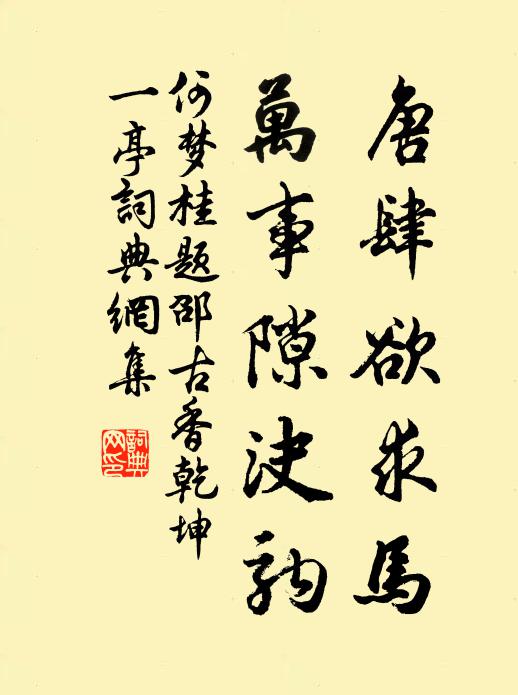 唐肆欲求馬
萬事隙決駒
何梦桂题邵古香乾坤
一亭詞典網集
詞典网印